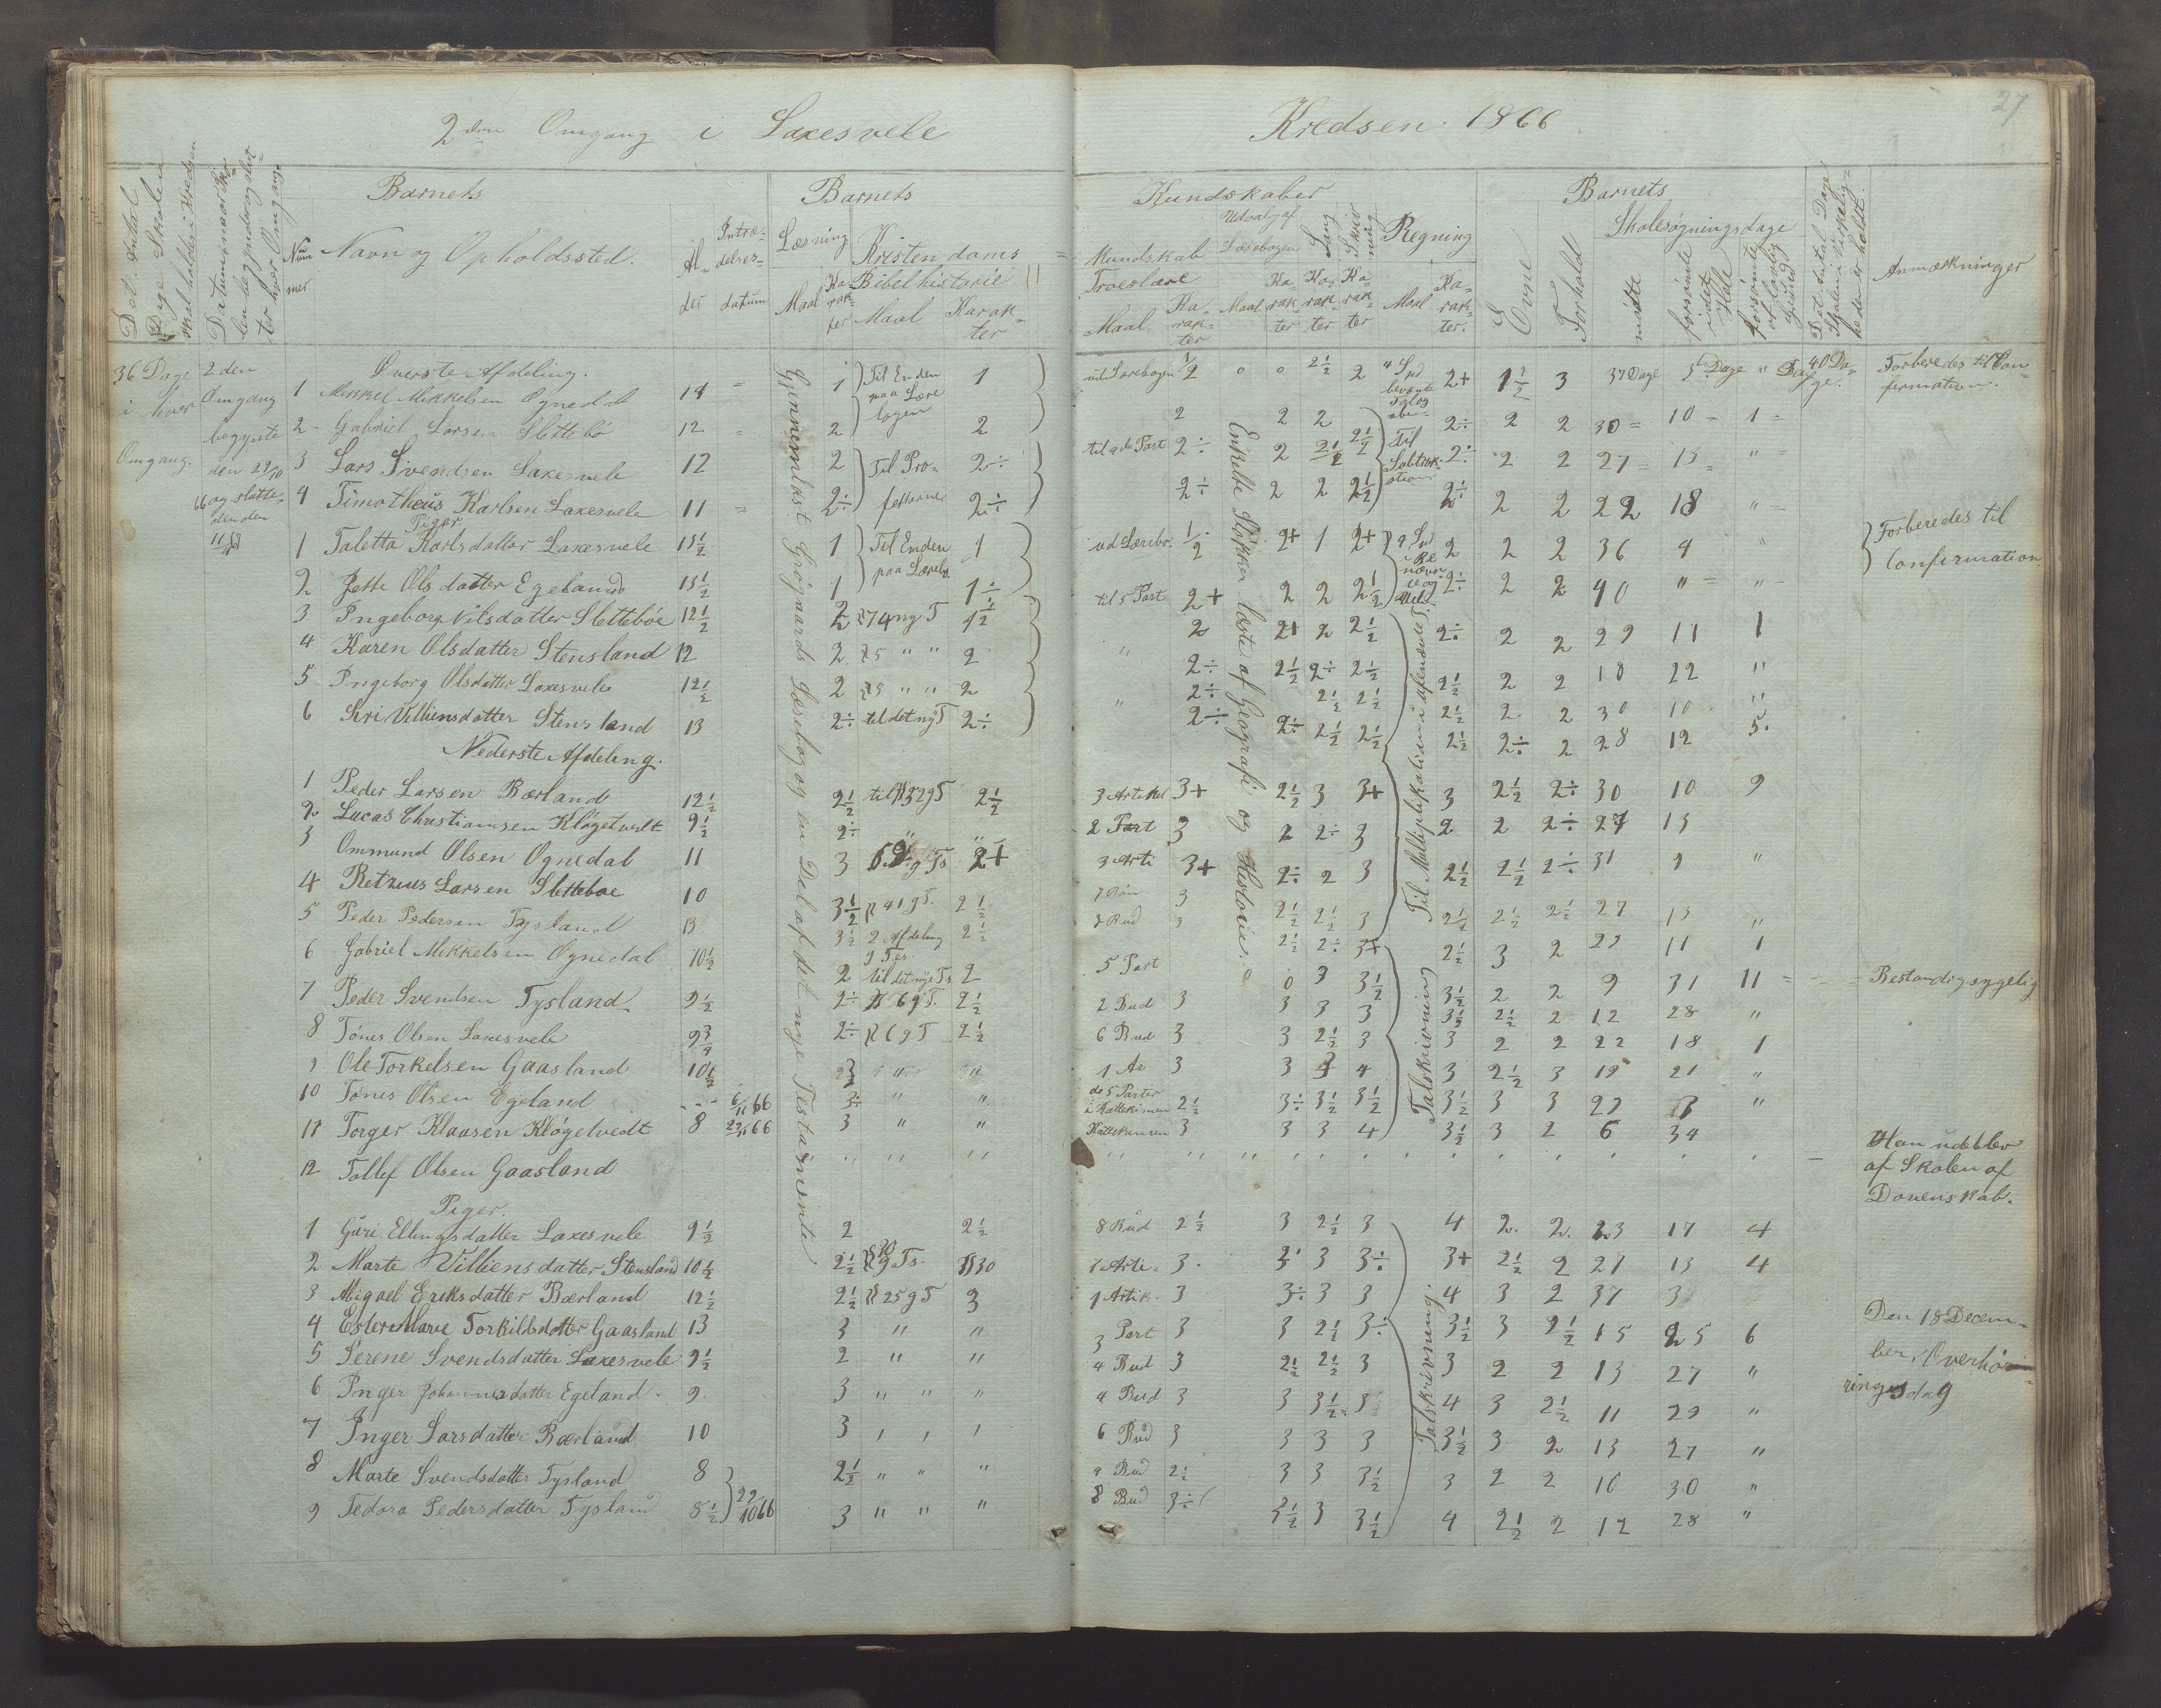 27
2den Omgang i Laxesvele Kredsen 1866
Det Antal Dage Skolen skal holdes i Kredsen
Datum, naar Skolen begynder og slutter hver Omgang
Nummer
Barnets
Navn og Opholdssted.
Alder
Indtrædelsesdatum
Barnets Kundskaber
Læsning
Maal
Karakter
Kristendoms= Kundskab
Bibelhistorie
Maal
Karakter
Troeslære
Maal
Karakter
Udvalg af Læsebogen
Maal
Karakter
Sang
Karakter
Skrivning
Karakter
Regning
Maal
Karakter.
Barnets
Evne
Forhold
Skolesøgningsdage
mødte
forsømte i det Hele
forsømte af lovlig Grund
Det Antal Dage Skolen i Virkeligheden er holdt.
Anmærkninger
36 Dage i hver Omgang.
2den Omgang begynte den 29/10 66 og sluttedes den
Gjennemlæst Grøgaards Læsebog og en Del af det nye Testamente
Enkelte Stykker læste af Geografi og Historie.
Øverste Afdeling.
1 Mikkel Mikkelsen Ognedal 14 " 1 Til Enden paa Lærebogen 1 ud Lærebogen 1/2 0 0 2 1/2 2 2+ 1 1/2 3 37 Dage 3 Dage " Dag 40 Dage. Forberedes til Konfirmation.
2 Gabriel Larsen Slettebø 12 " 2 2 2 2 2 2÷ 2 2 30 = 10 = 1 =
3 Lars Svendsen Laxesvele 12 2 Til Profeterne 2÷ til 4de Part 2÷ 2 2 1/2 2 1/2 Til Subtraktion 2÷ 2 2 27 = 13 = " =
4 Timotheus Karlsen Laxesvele 11 = 2÷ 2÷ 2÷ 2 2 2 1/2 2÷ 2 2 22 18 " =
Piger
1 Taletta Karlsdatter Laxesvele 13 1/2 1 Til Enden paa Læreb. 1 ud Lærebo. 1/2 2+ 1 2+ 2 2 2 36 4 " Forberedes til Confirmation
2 Jette Olsdatter Egeland 13 1/2 1 1÷ til 5 Part 2+ 2 2 2 1/2 2÷ 2 2 40 " = " =
3 Ingeborg Nilsdatter Slettebøe 12 1/2 2 74 ny T 1 1/2 2 2+ 2 2 1/2 Til Multiplikation i ubenævnte T. 2÷ 2 2 29 11 1
4 Karen Olsdatter Stensland 12 2 75 " " 2 " 2÷ 2 1/2 2÷ 2 1/2 2 1/2 2 2 18 22 "
5 Ingeborg Olsdatter Laxesvele 12 1/2 2 75 " " 2 2÷ 2 1/2 2 1/2 2 1/2 2 2 30 10 "
6 Siri Villiensdatter Stensland 13 2÷ til det ny T 2÷ " 2÷ 2÷ 2 1/2 2 1/2 2 1/2 2÷ 2 28 12 5.
Nederste Afdeling.
1 Peder Larsen Bærland 12 1/2 2 1/2 til 32 g T 2 1/2 3 Artikel 3+ 2 1/2 3 3+ 3 2 1/2 2÷ 30 10 9
2 Lucas Christiansen Kløgetvedt 9 1/2 2÷ " " 2 Part 3 2 2÷ 3 2 2 2÷ 27 13
3 Ommund Olsen Ognedal 11 3 g Ts 2+ 3 Arti 3+ 2÷ 2 3 2 1/2 2 1/2 2÷ 31 9 "
4 Retzeus Larsen Slettebøe 10 3 1/2 41 g T. 2 1/2 7 Bøn 3 2 1/2 2 1/2 3 2 1/2 2 1/2 2 1/2 27 13 "
5 Peder Pedersen Tysland 13 3 1/2 2 Afdeling g Tes 2 1/2 7 Bud 3 2 1/2 2÷ 3+ 2 1/2 3 2 29 11 1
6 Gabriel Mikkelsen Ognedal 10 1/2 2 til det nye Ts 2 5 Part 0 3 3 1/2 Talskrivning 3 1/2 2 2 9 31 11 = Bestandig sygelig
7 Peder Svendsen Tysland 9 1/2 2÷ 69 T. 2 1/2 2 Bud 3 3 3 3 3 1/2 2 1/2 2 12 28 "
8 Tønes Olsen Laxesvele 9 3/4 2÷ 6 g T 2 1/2 6 Bud 3 3 2 1/2 3 3 2 2 22 18 1
9 Ole Torkelsen Gaasland 10 1/2 " 1 Ar 3 3 4 3 2 1/2 3 19 21 "
10 Tønes Olsen Egeland 6/11 66 3÷ " " de 5 Parter i Kattekismen 2 1/2 3÷ 3 1/2 3 1/2 3 1/2 3 3 27 3 "
11 Torger Klausen Kløgetvedt 8 29/11 66 3 " " Kattekismen 3 3 3 4 3 1/2 3 2 6 34
12 Tollef Olsen Gaasland " " " " " " Han udeblev af Skolen af Dovenskab.
Piger.
1 Guri Ellingsdatter Laxesvele 9 1/2 2 2 1/2 8 Bud 2 1/2 3 2 1/2 3 4 2. 2. 23 17 4
2 Marte Villiensdatter Stensland 10 1/2 2 1/2 30 g Ts. 30 7 Arti. 3. 3 3 3÷ 3+ 2 1/2 2 27 13 4
3 Abigael Eriksdatter Bærland 12 1/2 2 1/2 25 g T 3 1 Artik. 3 3÷ 3 3 Talskrivning. 4 3 2 37 3
4 Ester Marie Torkildsdatter Gaasland 13 3 " " 3 Part 3 3 2 1/2 3÷ 3 1/2 3 2 1/2 15 25 6 Den 18 December, Overhøringsdag
5 Serene Svendsdatter Laxesvele 9 1/2 2 " " 4 Bud 3 2 1/2 2 1/2 3 3 2 2 13 27 "
6 Inger Johannesdatter Egeland 9 3 " " " 4 Bud 3 3 3 1/2 3 4 3 2 1/2 11 29 "
7 Inger Larsdatter Bærland 10 3 " " " 6 Bud 3 3 3 3 3 1/2 3 2 13 27 "
8 Marte Svendsdatter Tysland 8 2 1/2 " " " 4 Bud 2 1/2 3 3 3 1/2 3 2 2 10 30 "
9 Tedora Pedersdatter Tysland 8 1/2 29/10 66 3 " " " 8 Bud 3÷ 3 1/2 3 3 1/2 4 2 1/2 2 12 28 "